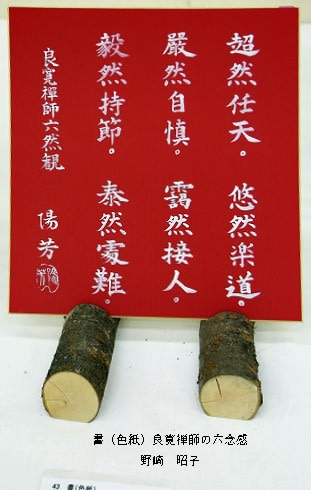 超然任天。悠然楽道。
嚴然自慎。靄然接人。
毅然持節。泰然處難。
良寛禪師六然観 陽芳
書(色紙)良寛禅師の六念感
野崎 昭子
43 書(色紙)